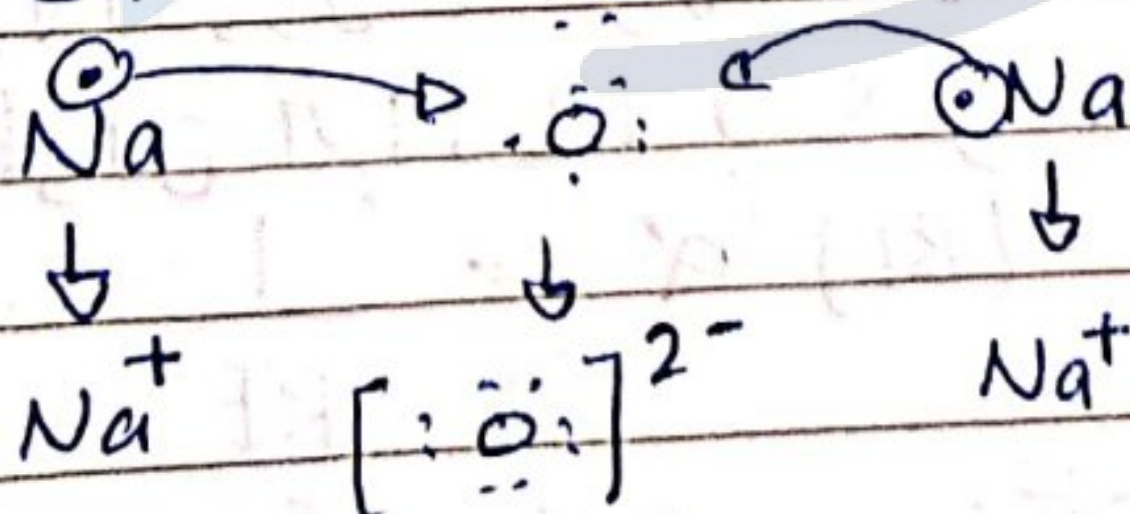 Na .Ö: Na
↓ ↓ ↓
Na⁺ [:Ö:]²⁻ Na⁺